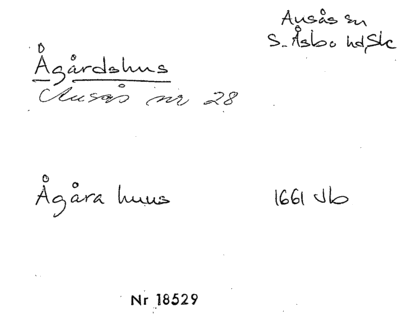 Ausås sn
S. Åsbo hd, Sk
Ågårdshus
Ausås nr 28
Ågåra huus 1661 Jb
Nr 18529